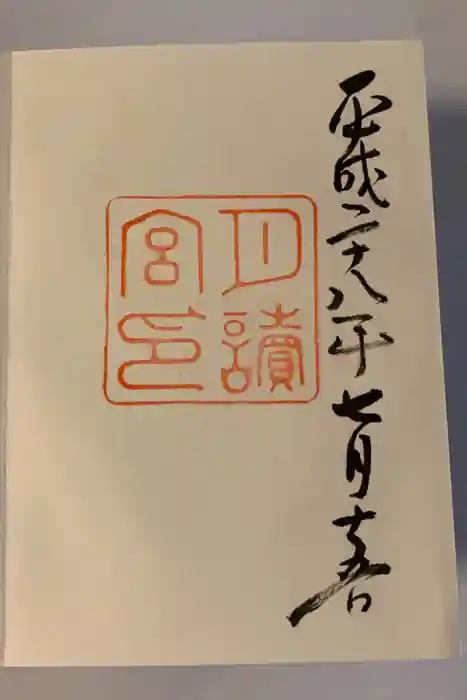 平成二十八年七月十五日
月讀
宮印